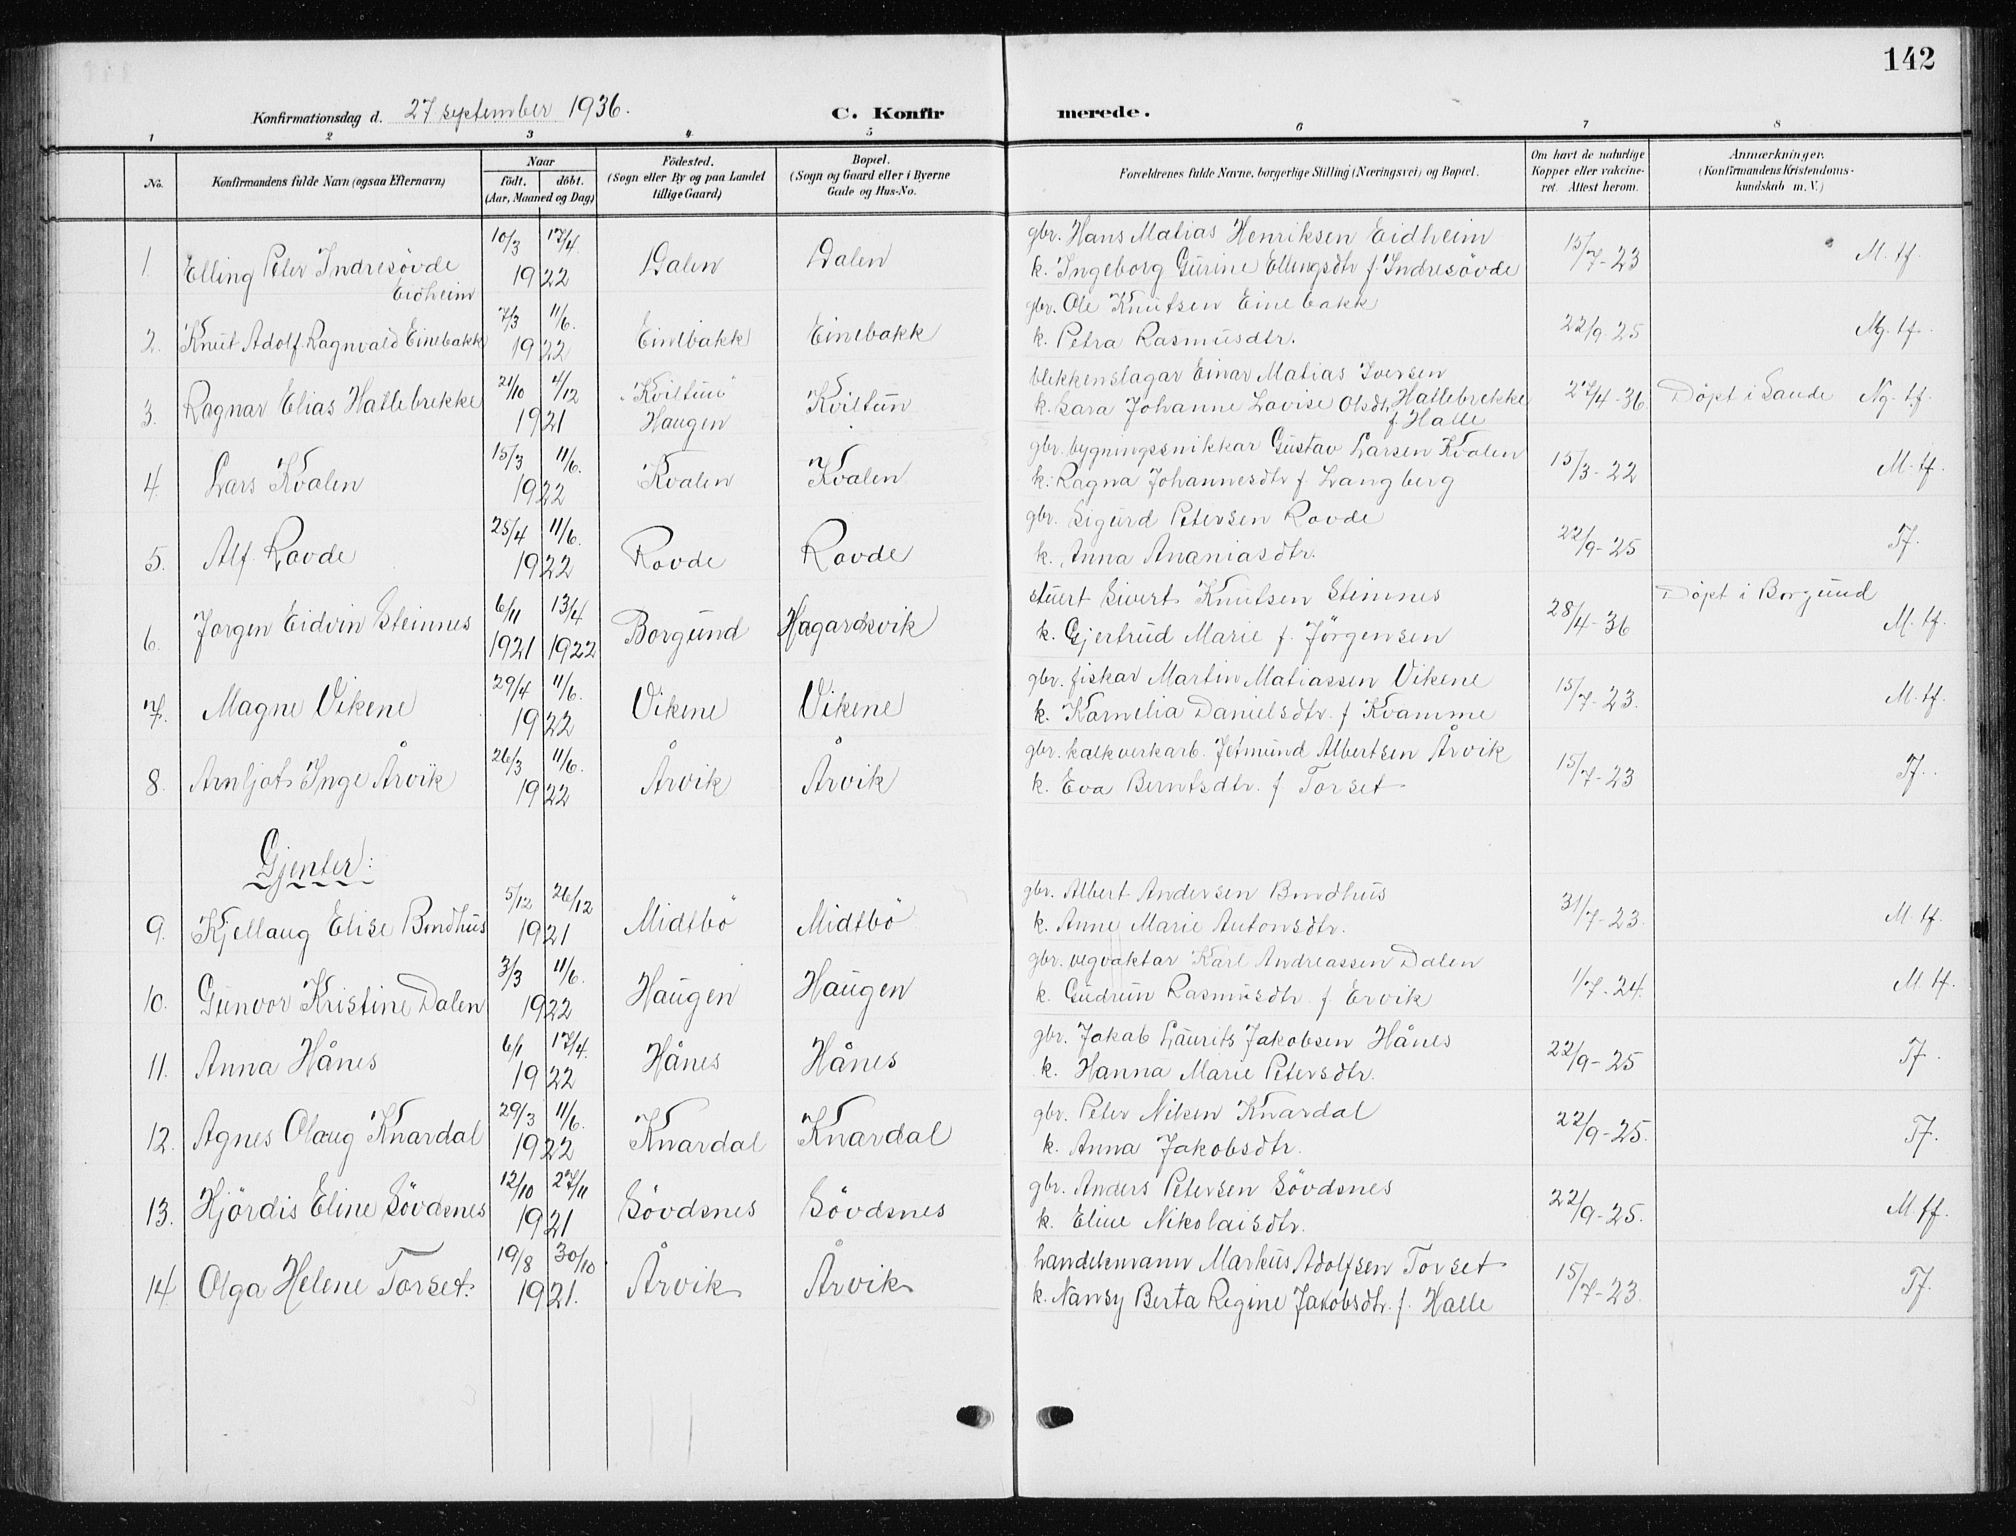 142
Konfirmationsdag d. 27 september 1936. C. Konfirmerede.
1 2 3 4 5 6 7 8
No. Konfirmandens fulde Navn (ogsaa Efternavn) Naar Födested. Bopæl. Forældrenes fulde Navne, borgerlige Stilling (Næringsvei) og Bopæl. Om havt de naturlige Anmærkninger.
födt. döbt. (Sogn eller By og paa Landet (Sogn og Gaard eller i Byerne Kopper eller vakcine- (Konfirmandens Kristendoms-
(Aar, Maaned og Dag) tillige Gaard) Gade og Hus-No. ret. Attest herom. kundskab m. V.)
10/3 17/4 gbr. Hans Matias Henriksen Eidheim
1. Elling Peter Indresövde 1922 Dalen Dalen k. Ingeborg Gurine Ellingsdtr f. Indresövde 15/7-23 M. tf.
Eidheim
7/3 11/6. gbr. Ole Knutsen Einebakk
2. Knut Adolf Ragnvald Einebakk 1922 Einebakk Einebakk k. Petra Rasmusdtr. 22/9-25 Mg. tf.
21/10 4/12 "Kviltun" blekkenslagar Einar Matias Iversen
3. Ragnar Elias Hallebrekke 1921 Haugen Kviltun k. Sara Johanne Lovise Olsdtr Hallebrekke 27/4-36 Döpt i Sande Ng. tf.
f. Halle
15/3 11/6. gbr. bygningssnikkar Gustav Larsen Kvalen
4. Lars Kvalen 1922 Kvalen Kvalen k. Ragna Johannesdtr f. Langberg 15/3-22 M. tf.
25/4 11/6. gbr. Sigurd Petersen Rovde
5. Alf Rovde 1922 Rovde Rovde k. Anna Ananiasdtr. 22/9-25 Tf.
6/11 13/4 stuert Sivert Knutsen Steinnes Döpt i Borgund
6. Jorgen Eidvin Steinnes 1921 1922 Borgund Hagardsvik k. Gjertrud Marie f. Jörgensen 28/4-36 M. tf.
29/4 11/6. gbr. fiskar Martin Matiassen Vikene
7. Magne Vikene 1922 Vikene Vikene k. Kornelia Danielsdtr. f Kvamme 15/7-23. M. tf.
26/3 11/6. gbr. kalkverkarb. Jetmund Albertsen Årvik
8. Arnljot Inge Årvik 1922 Årvik Årvik k. Eva Berntsdtr. f Torset 15/7-23 Tf.
Gjenter:
5/12 26/12 gbr. Albert Andersen Bondhus
9. Kjellaug Elise Bondhus 1921 Midtbö Midtbö k. Anne Marie Antonsdtr. 31/7-23. M. tf.
3/3 11/6. gbr. vegvaktar Karl Andreassen Dalen
10. Gunvor Kristine Dalen 1922 Haugen Haugen k. Gudrun Rasmusdtr. f. Ervik 1/7-24. M. tf.
6/1 17/4. gbr. Jakob Laurits Jakobsen Hånes
11. Anna Hånes 1922 Hånes Hånes k. Hanna Marie Petersdtr. 22/9-25 Tf.
29/3 11/6. gbr. Peter Nilsen Knardal
12. Agnes Olaug Knardal 1922 Knardal Knardal k. Anna Jakobsdtr. 22/9-25. Tf.
12/10 27/11 gbr. Anders Petersen Sövdsnes
13. Hjördis Eline Sövdsnes 1921 Sövdsnes Sövdsnes k. Eline Nikolaisdtr. 22/9-25. M. tf.
19/8 30/10. handelsmann Markus Adolfsen Torset
14. Olga Helene Torset. 1921. Årvik Årvik k. Nansy Berta Regine Jakobsdtr. f. Halle 15/7-23. Tf.